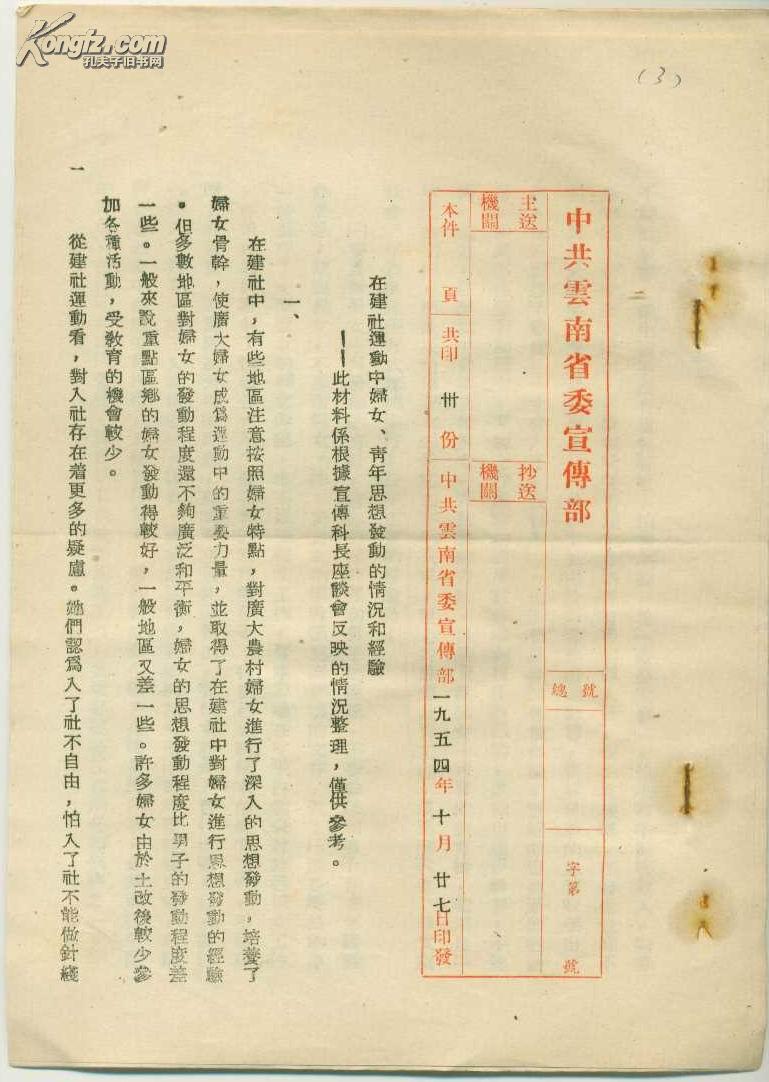 Kongfz.com
孔夫子旧书网
(3)
中共雲南省委宣傳部
總號
字第 號
主送機關
抄送機關
本件 頁 共印 卅 份 中共雲南省委宣傳部 一九五四年十月廿七日印發
在建社運動中婦女、青年思想發動的情況和經驗
——此材料係根據宣傳科長座談會反映的情況整理，僅供參考。
一、
在建社中，有些地區注意按照婦女特點，對廣大農村婦女進行了深入的思想發動，培養了
婦女骨幹，使廣大婦女成爲運動中的重要力量，並取得了在建社中對婦女進行思想發動的經驗
。但多數地區對婦女的發動程度還不夠廣泛和平衡，婦女的思想發動程度比男子的發動程度差
一些。一般來說重點區鄉的婦女發動得較好，一般地區又差一些。許多婦女由於土改後較少參
加各種活動，受敎育的機會較少。
從建社運動看，對入社存在着更多的疑慮。她們認爲入了社不自由，怕入了社不能做針綫
一